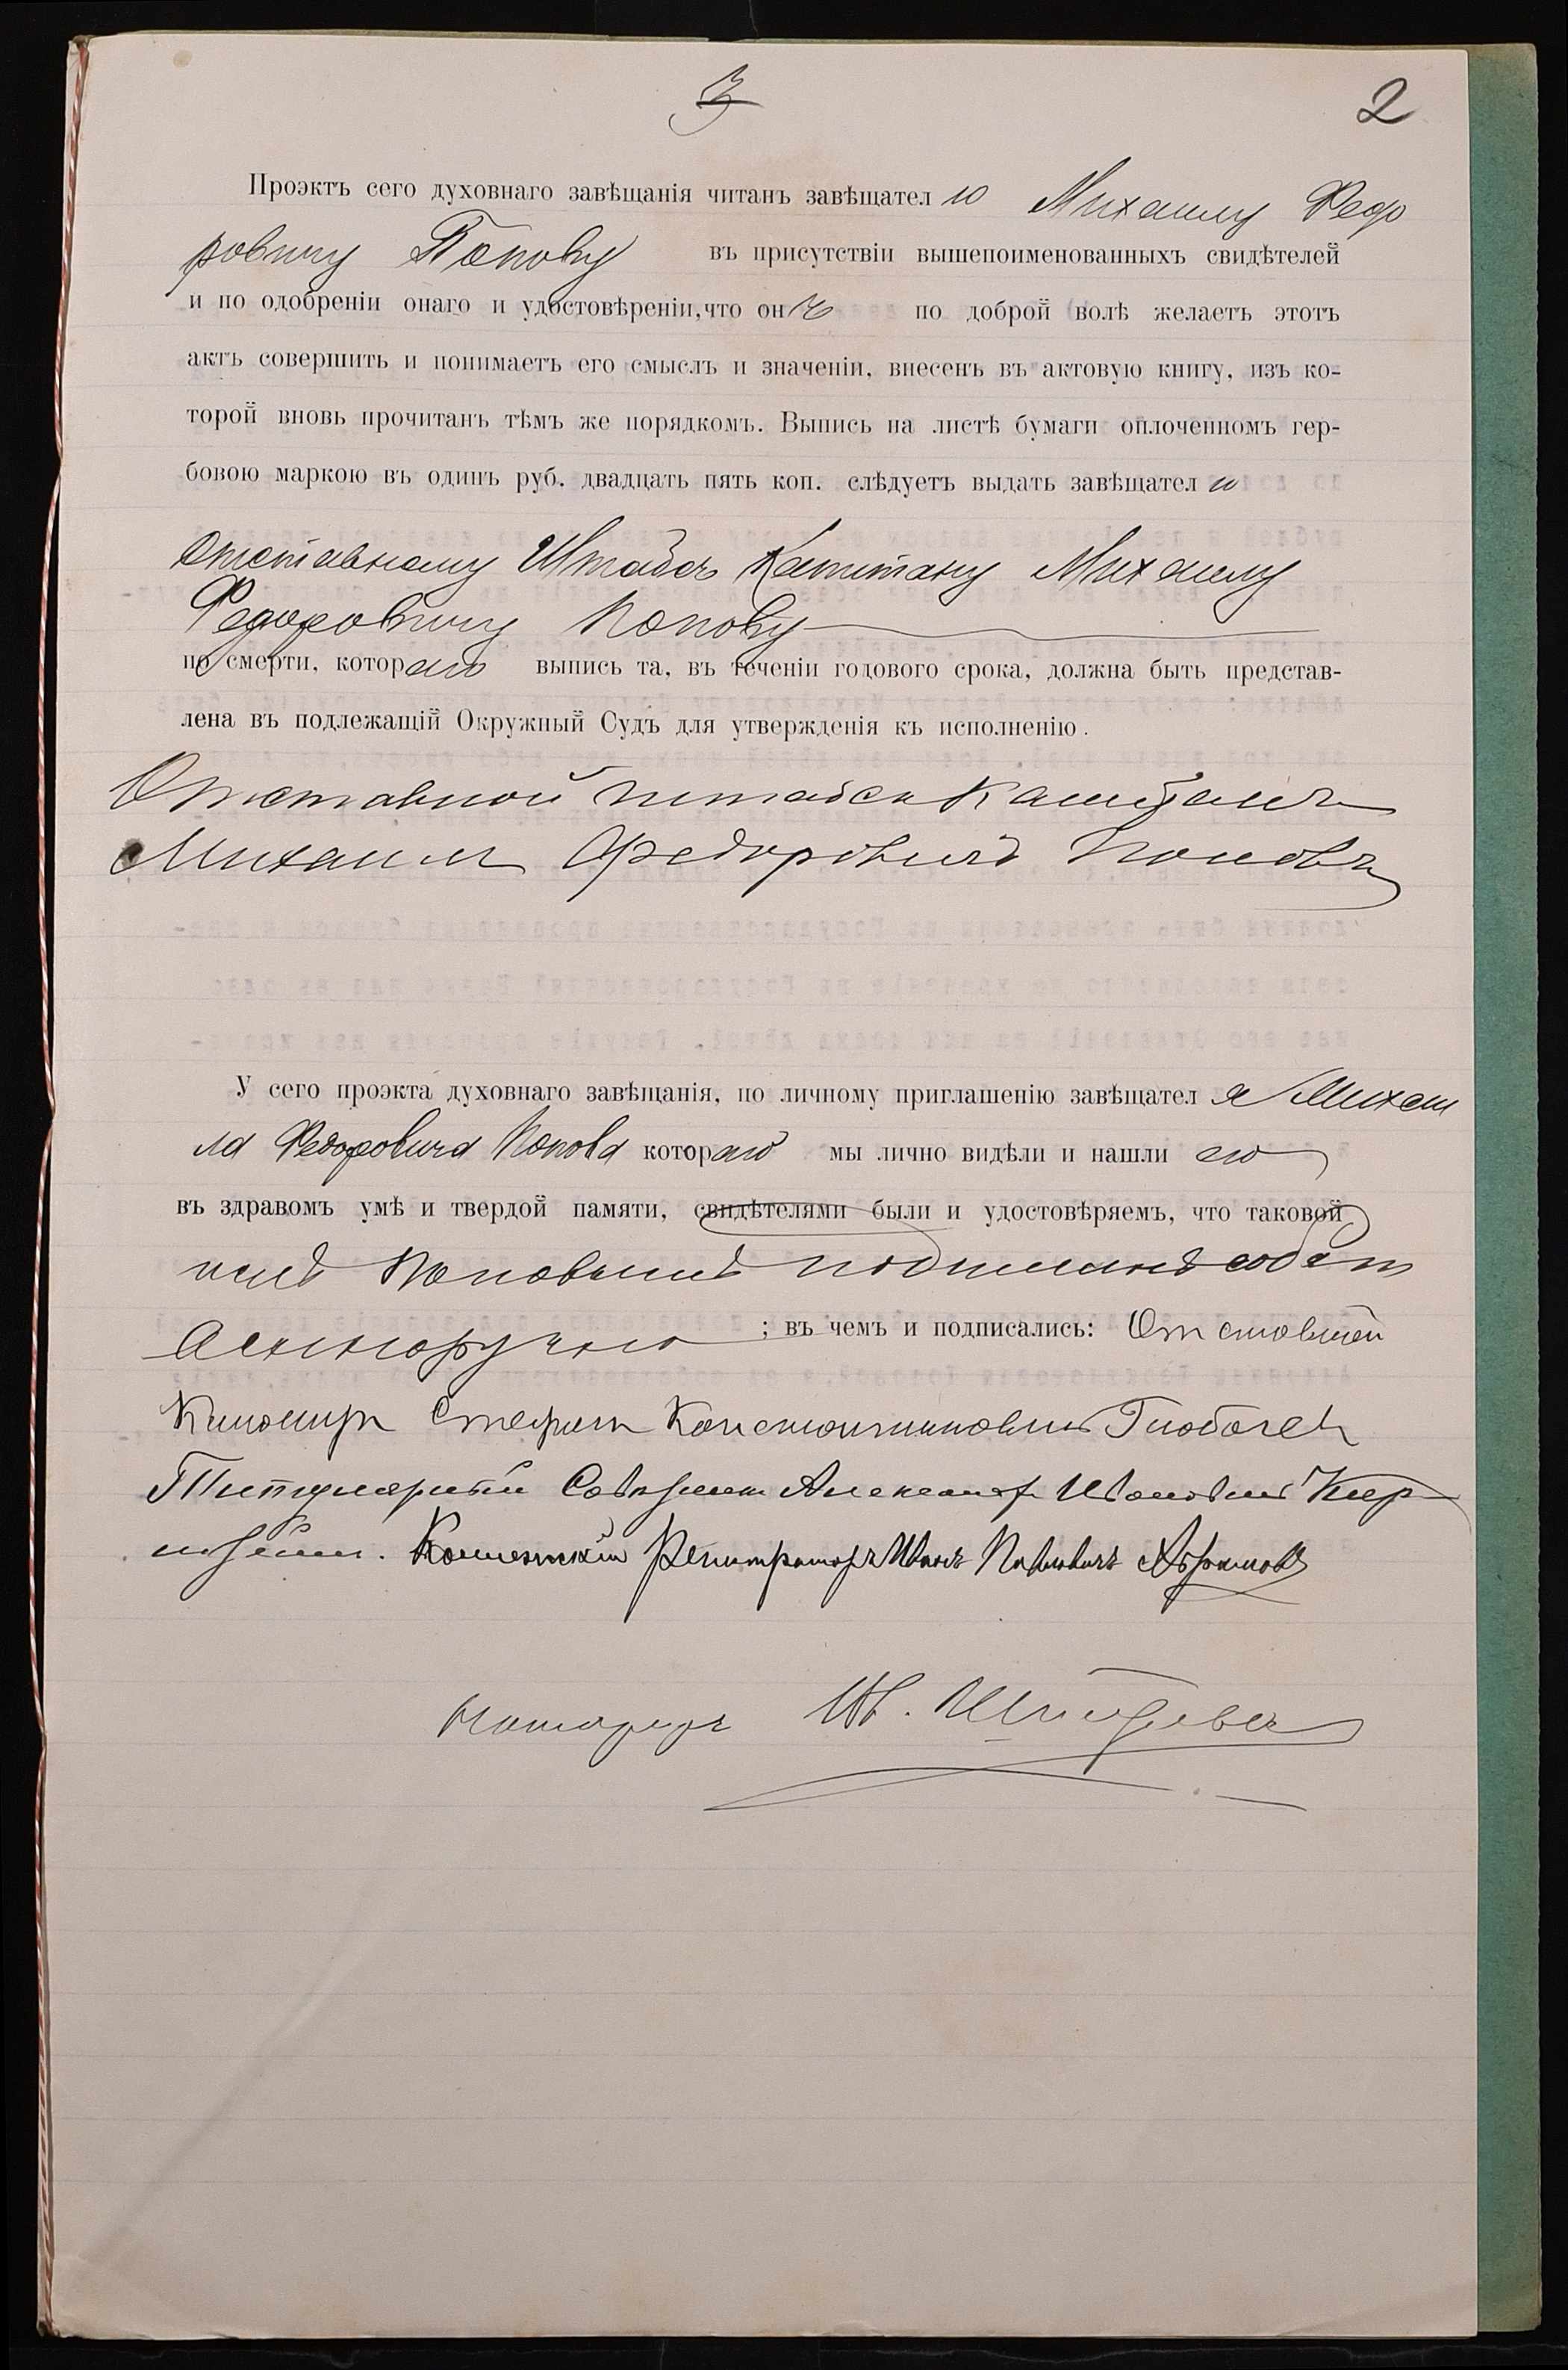 3
2
Проэктъ сего духовнаго завѣщанія читанъ завѣщател ю Михаилу Федо
ровичу Попову въ присутствіи вышепоименованныхъ свидѣтелей
и по одобреніи онаго и удостовѣреніи, что онъ по доброй волѣ желаетъ этотъ
актъ совершить и понимаетъ его смыслъ и значеніи, внесенъ въ актовую книгу, изъ ко-
торой вновь прочитанъ тѣмъ же порядкомъ. Выпись на листѣ бумаги оплоченномъ гер-
бовою маркою въ одинъ руб. двадцать пять коп. слѣдуетъ выдать завѣщател ю
отставному Штабсъ Капитану Михаилу
Федоровичу Попову
по смерти, котораго выпись та, въ теченіи годового срока, должна быть представ-
лена въ подлежащій Окружный Судъ для утвержденія къ исполненію.
Отставной штабсъ Капитанъ
Михаилъ Федоровичъ Поповъ
У сего проэкта духовнаго завѣщанія, по личному приглашенію завѣщател я Михаи
ла Федоровича Попова котораго мы лично видѣли и нашли его
въ здравомъ умѣ и твердой памяти, свидѣтелями были и удостовѣряемъ, что таковой
имъ Поповымъ подписанъ собст
венноручно ; въ чемъ и подписались: Отставной
Константиновичъ
Титулярный Совѣтникъ Александръ Ивановичъ
Коллежскій Регистраторъ Иванъ Павловичъ Абрамовъ
Нотаріусъ Ив.